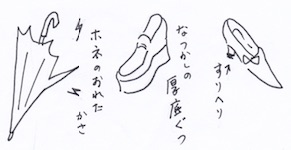 ホネのおれた
かさ
なつかしの
厚底ぐつ
すりへり